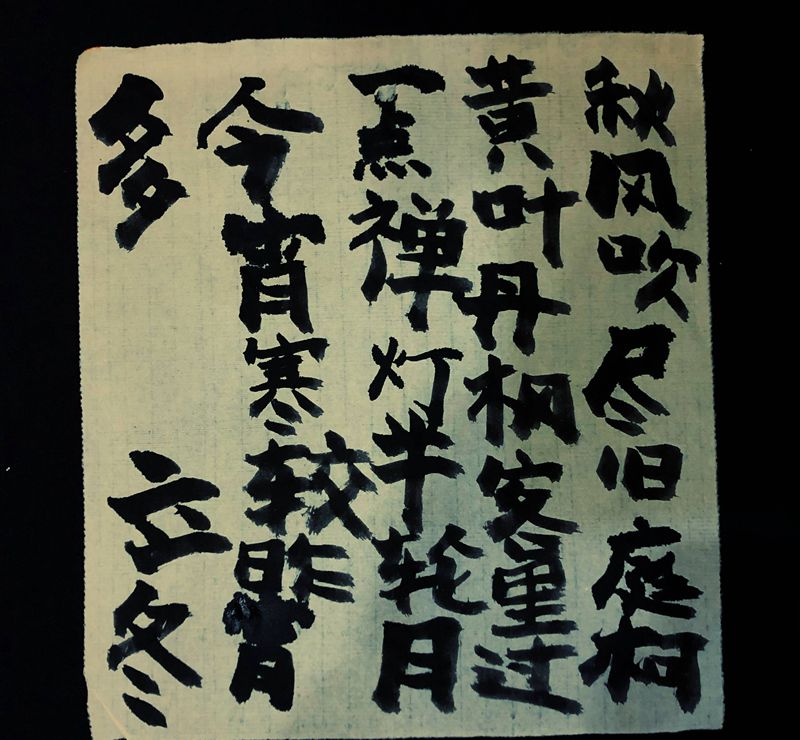 秋风吹尽旧庭柯
黄叶丹枫安里过
一点禅灯半轮月
今宵寒较昨宵
多
立冬